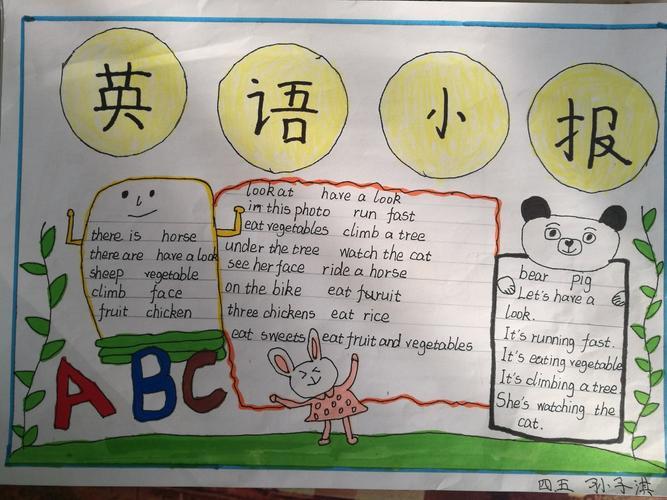 英语小报
there is horse
there are have a look
sheep vegetable
climb face
fruit chicken
look at have a look
in this photo run fast
eat vegetables climb a tree
under the tree watch the cat
see her face ride a horse
on the bike eat furuit
three chickens eat rice
eat sweets eat fruit and vegetables
bear pig
Let's have a
look.
It's running fast.
It's eating vegetable
It's climbing a tree
She's watching the
cat.
ABC
四五 孙子淇